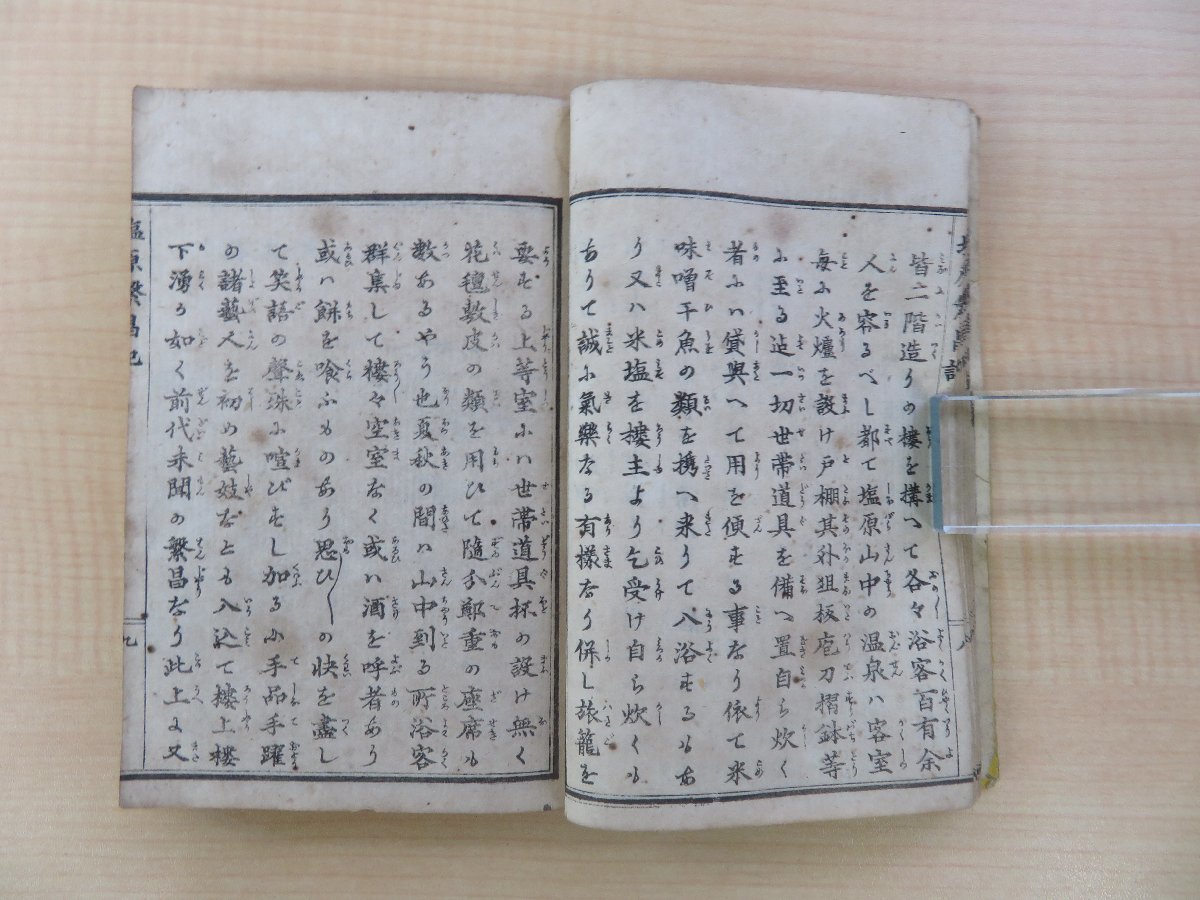 皆二階造りの樓を搆へて各々浴客百有余
人を容るべし都て塩原山中の温泉ハ客室
毎に火爐を設け戸棚其外俎板庖刀摺鉢等
に至る迠一切世帯道具を備へ置自ら炊く
者にハ貸與へて用を便ずる事なり依て米
味噌干魚の類を携へ来りて入浴するもあ
り又ハ米塩を樓主より乞受け自ら炊くも
ありて誠に氣樂なる有様なり併し旅籠を
要する上等室にハ世帯道具杯の設け無く
花氊敷皮の類を用ひて隨分鄭重の座席も
数あるやう也夏秋の間ハ山中到る所浴客
群集して樓々空室なく或ハ酒を呼者あり
或ハ餅を喰ふものあり思ひ〳〵の快を盡し
て笑語の聲殊に喧びすし加るに手品手躍
の諸藝人を初め藝妓なども入込て樓上樓
下湧が如く前代未聞の繁昌なり此上に又
塩原繁昌記
九